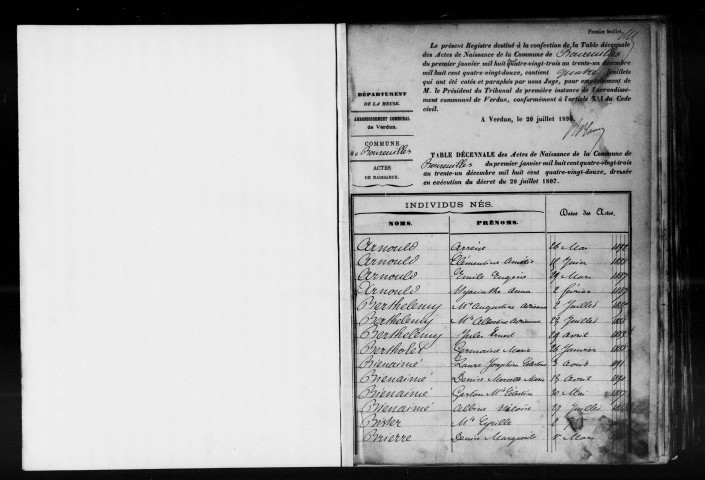 Premier feuillet.
Le présent Registre destiné à la confection de la Table décennale
des Actes de Naissance de la Commune de Boureuilles
du premier janvier mil huit cent quatre-vingt-trois au trente-un décembre
mil huit cent quatre-vingt-douze, contient quatre feuillets
qui ont été cotés et paraphés par nous Juge, pour empêchement de
M. le Président du Tribunal de première instance de l'arrondisse-
ment communal de Verdun, conformément à l'article XLI du Code
civil.
A Verdun, le 20 juillet 1893.
DÉPARTEMENT
DE LA MEUSE.
ARRONDISSEMENT COMMUNAL
de Verdun.
COMMUNE
de Boureuilles
ACTES
DE NAISSANCE.
TABLE DÉCENNALE des Actes de Naissance de la Commune de
Boureuilles du premier janvier mil huit cent quatre-vingt-trois
au trente-un décembre mil huit cent quatre-vingt-douze, dressée
en exécution du décret du 20 juillet 1807.
INDIVIDUS NÉS.
NOMS. PRÉNOMS. Dates des Actes.
Arnould Arsène 26 Mai
Arnould Clémentine Juin
Arnould Emile Eugène 29 Mars
Arnould Hyacinthe 2 février
Berthelemy Mie Augustine 2 Juillet
Berthelemy Mie Albertine 23 Juillet
Berthelemy Jules Ernest 29 avril
Bertholet Germaine Marie 26 Janvier
Bienaimé Laure Joséphine Célestine 3 Août 1891
Bienaimé Denise Marcelle Marie Août 1890
Bienaimé Gaston Célestin 20 Mai
Bienaimé Albine 29 Juillet
Bister Mie 2
Brierre Denise Marguerite 8 Mars